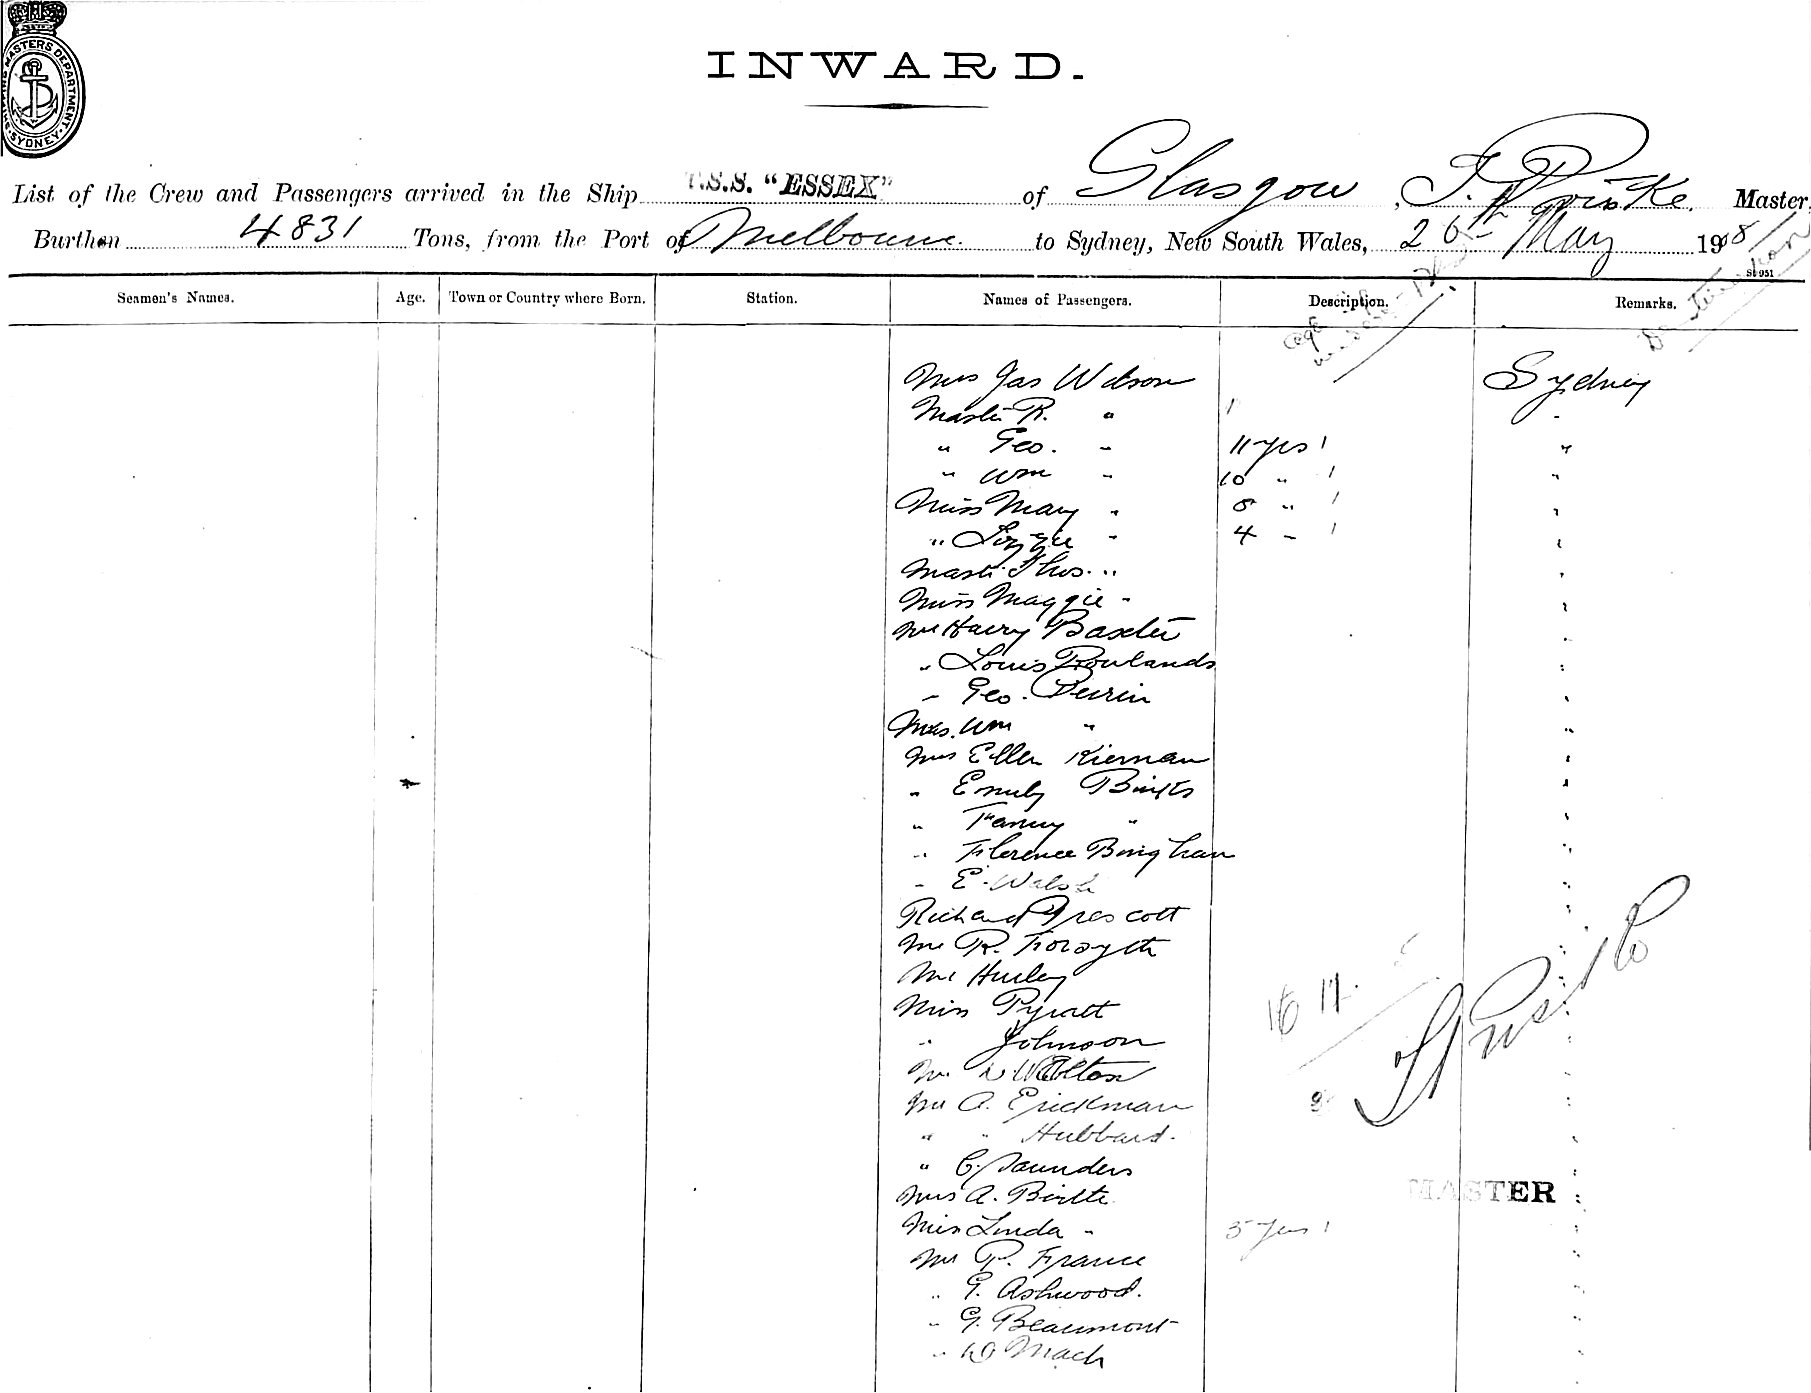 SHIPPING MASTERS DEPARTMENT SYDNEY
INWARD.
List of the Crew and Passengers arrived in the Ship T.S.S. "ESSEX" of Glasgow, Master,
Burthen 4831 Tons, from the Port of Melbourne to Sydney, New South Wales, 26th May 1908
St 951
Seamen's Names. Age. Town or Country where Born. Station. Names of Passengers. Description. Remarks.
age
Destination
Mrs Jas Wilson Sydney
Master R. " 1 "
" Geo. " 11 yrs 1 "
" Wm " 10 " 1 "
Miss Mary " 8 " 1 "
" Lizzie " 4 " 1 "
Master Thos. " "
Miss Maggie " "
Mr Harry Baxter "
" Louis Rowlands "
" Geo. Perrin "
Mrs. Wm " "
Mrs Ellen Kiernan "
" Emily Binks "
" Fanny " "
" Florence Bingham "
" E. Walsh "
Richard Prescott "
Mr R. Forsyth "
Mr Hurley "
Miss Pyratt "
" Johnson "
Mr Walton "
Mr A. Erickman "
" " Hubbard. "
" C. Saunders "
Mrs A. Birtle "
Miss Linda " 5 yrs 1 "
Mr R. France "
" G. Ashwood. "
" G. Beaumont "
" Mack "
16 17
MASTER